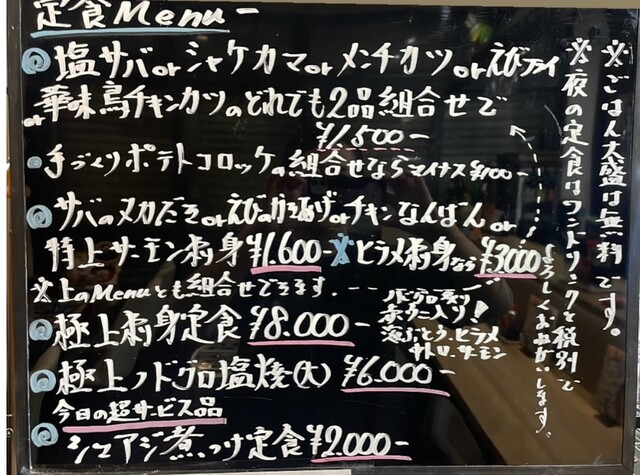 定食Menu-
塩サバorシャケカマorメンチカツorえびフライ
or華味鳥チキンカツのどれでも2品組合せで
¥1.800-
手づくりポテトコロッケの組合せならマイナス¥100-
サバのヌカだきorえびのかきあげorチキンなんばんor
特上サーモン刺身¥1.600-※ヒラメ刺身なら¥3.000
※上のMenuとも組合せできます。
極上刺身定食¥8.000-
赤ウニ入り!
海ぶどう、ヒラメ
サーモン
極上ノドグロ塩焼(大)¥6.000-
今日の超サービス品
シマアジ煮つけ定食¥2.000-
※ごはん大盛は無料です。
※夜の定食はワンドリンクを税別で
よろしくおねがいします。